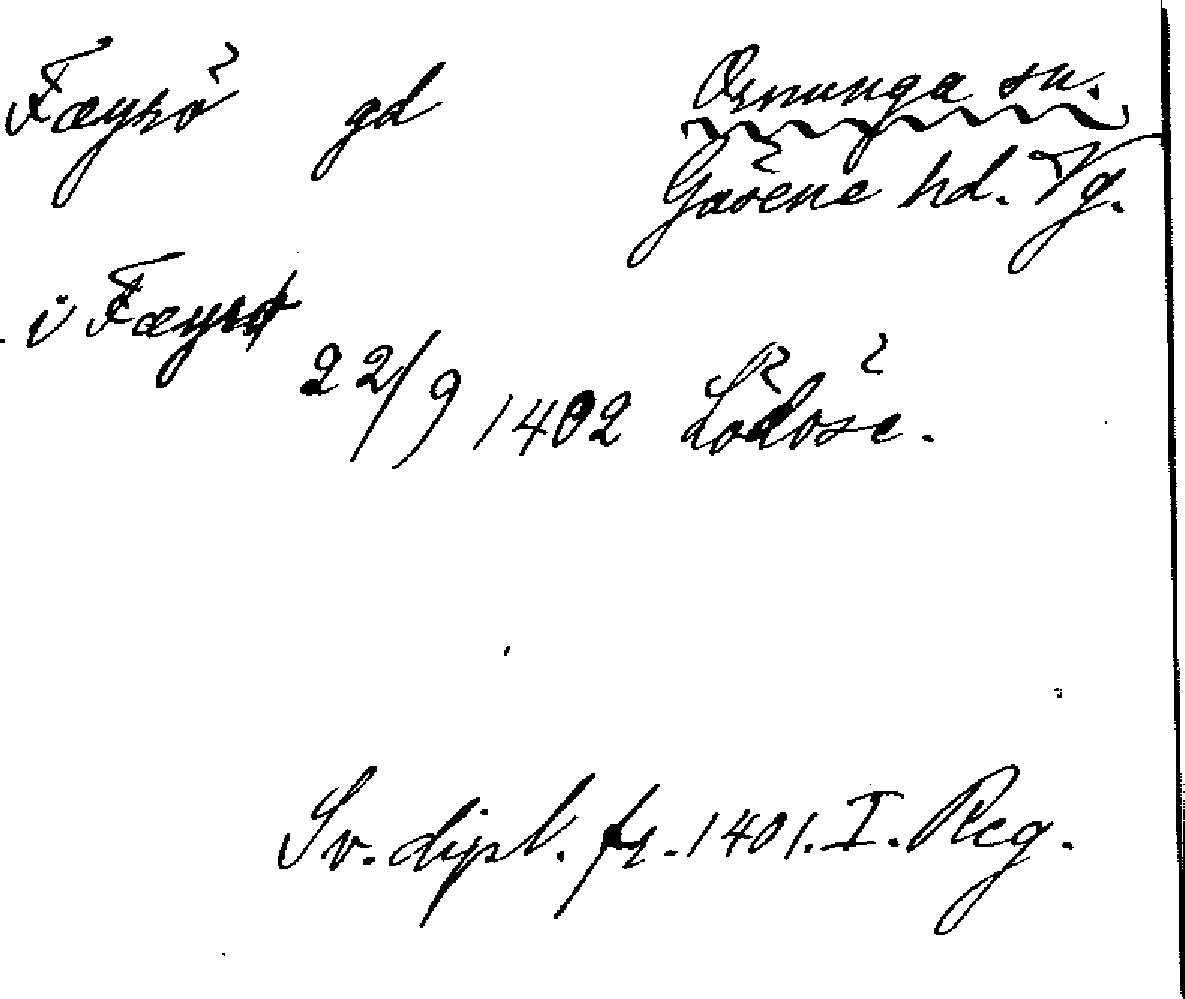 Fæyrö gd Ornunga sn.
Gäsene hd. Vg.
i Fæyrø
22/9 1402 Lödöse.
Sv. dipl. fr. 1401. I. Reg.